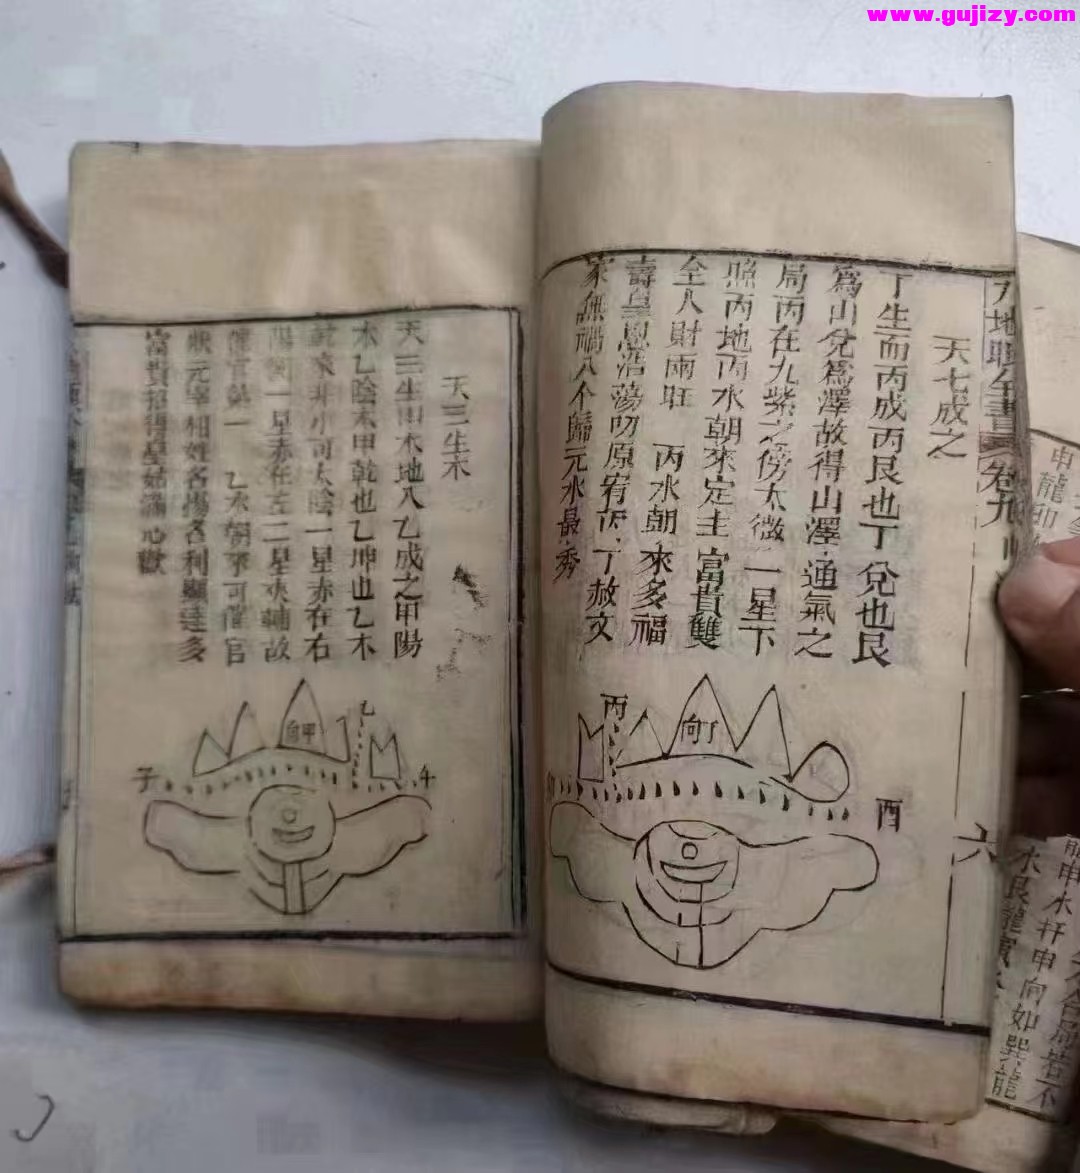 www.gujizy.com
天七成之
丁生而丙成丙艮也丁兌也艮
爲山兌爲澤故得山澤通氣之
局丙在九紫之傍太微一星下
照丙地丙水朝來定主富貴雙
全人財兩旺 丙水朝來多福
壽皇恩浩蕩叨原宥丙丁赦文
家無禍八个歸元水最秀
丙
向丁
酉
卷九
六
天三生木
天三生甲木地八乙成之甲陽
木乙陰木甲乾也乙坤也乙木
乾來非小可太陰一星赤在右
陽 一星赤在左二星夾輔故
催官第一 乙水朝來可催官
狀元宰相姓名揚名利顯達多
富貴招得皇姑滿心歡
乙
甲向
子
午
申龍卯
申水幵申向如巽龍
水艮龍